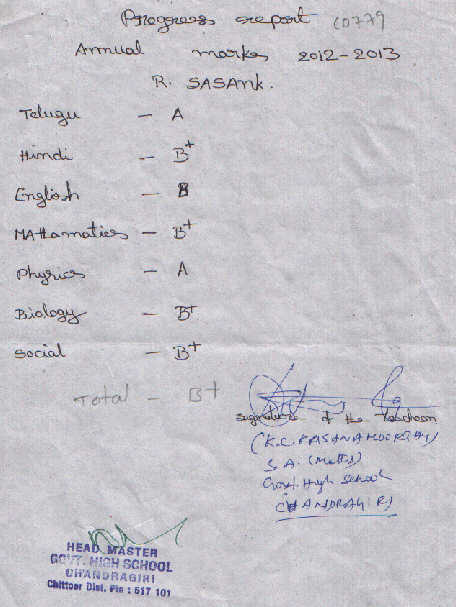 Progress report C0779
Annual marks 2012-2013
R. SASANK.
Telugu - A
Hindi - B+
English - B
MAthamatics - B+
Physics - A
Biology - B+
Social - B+
Total - B+
Signature of the Teachear
(K.C. KRISHNAMOORTHY)
S.A. (Maths)
Govt. High School
CHANDRAGIRI
HEAD MASTER
GOVT. HIGH SCHOOL
CHANDRAGIRI
Chittoor Dist. Pin : 517 101